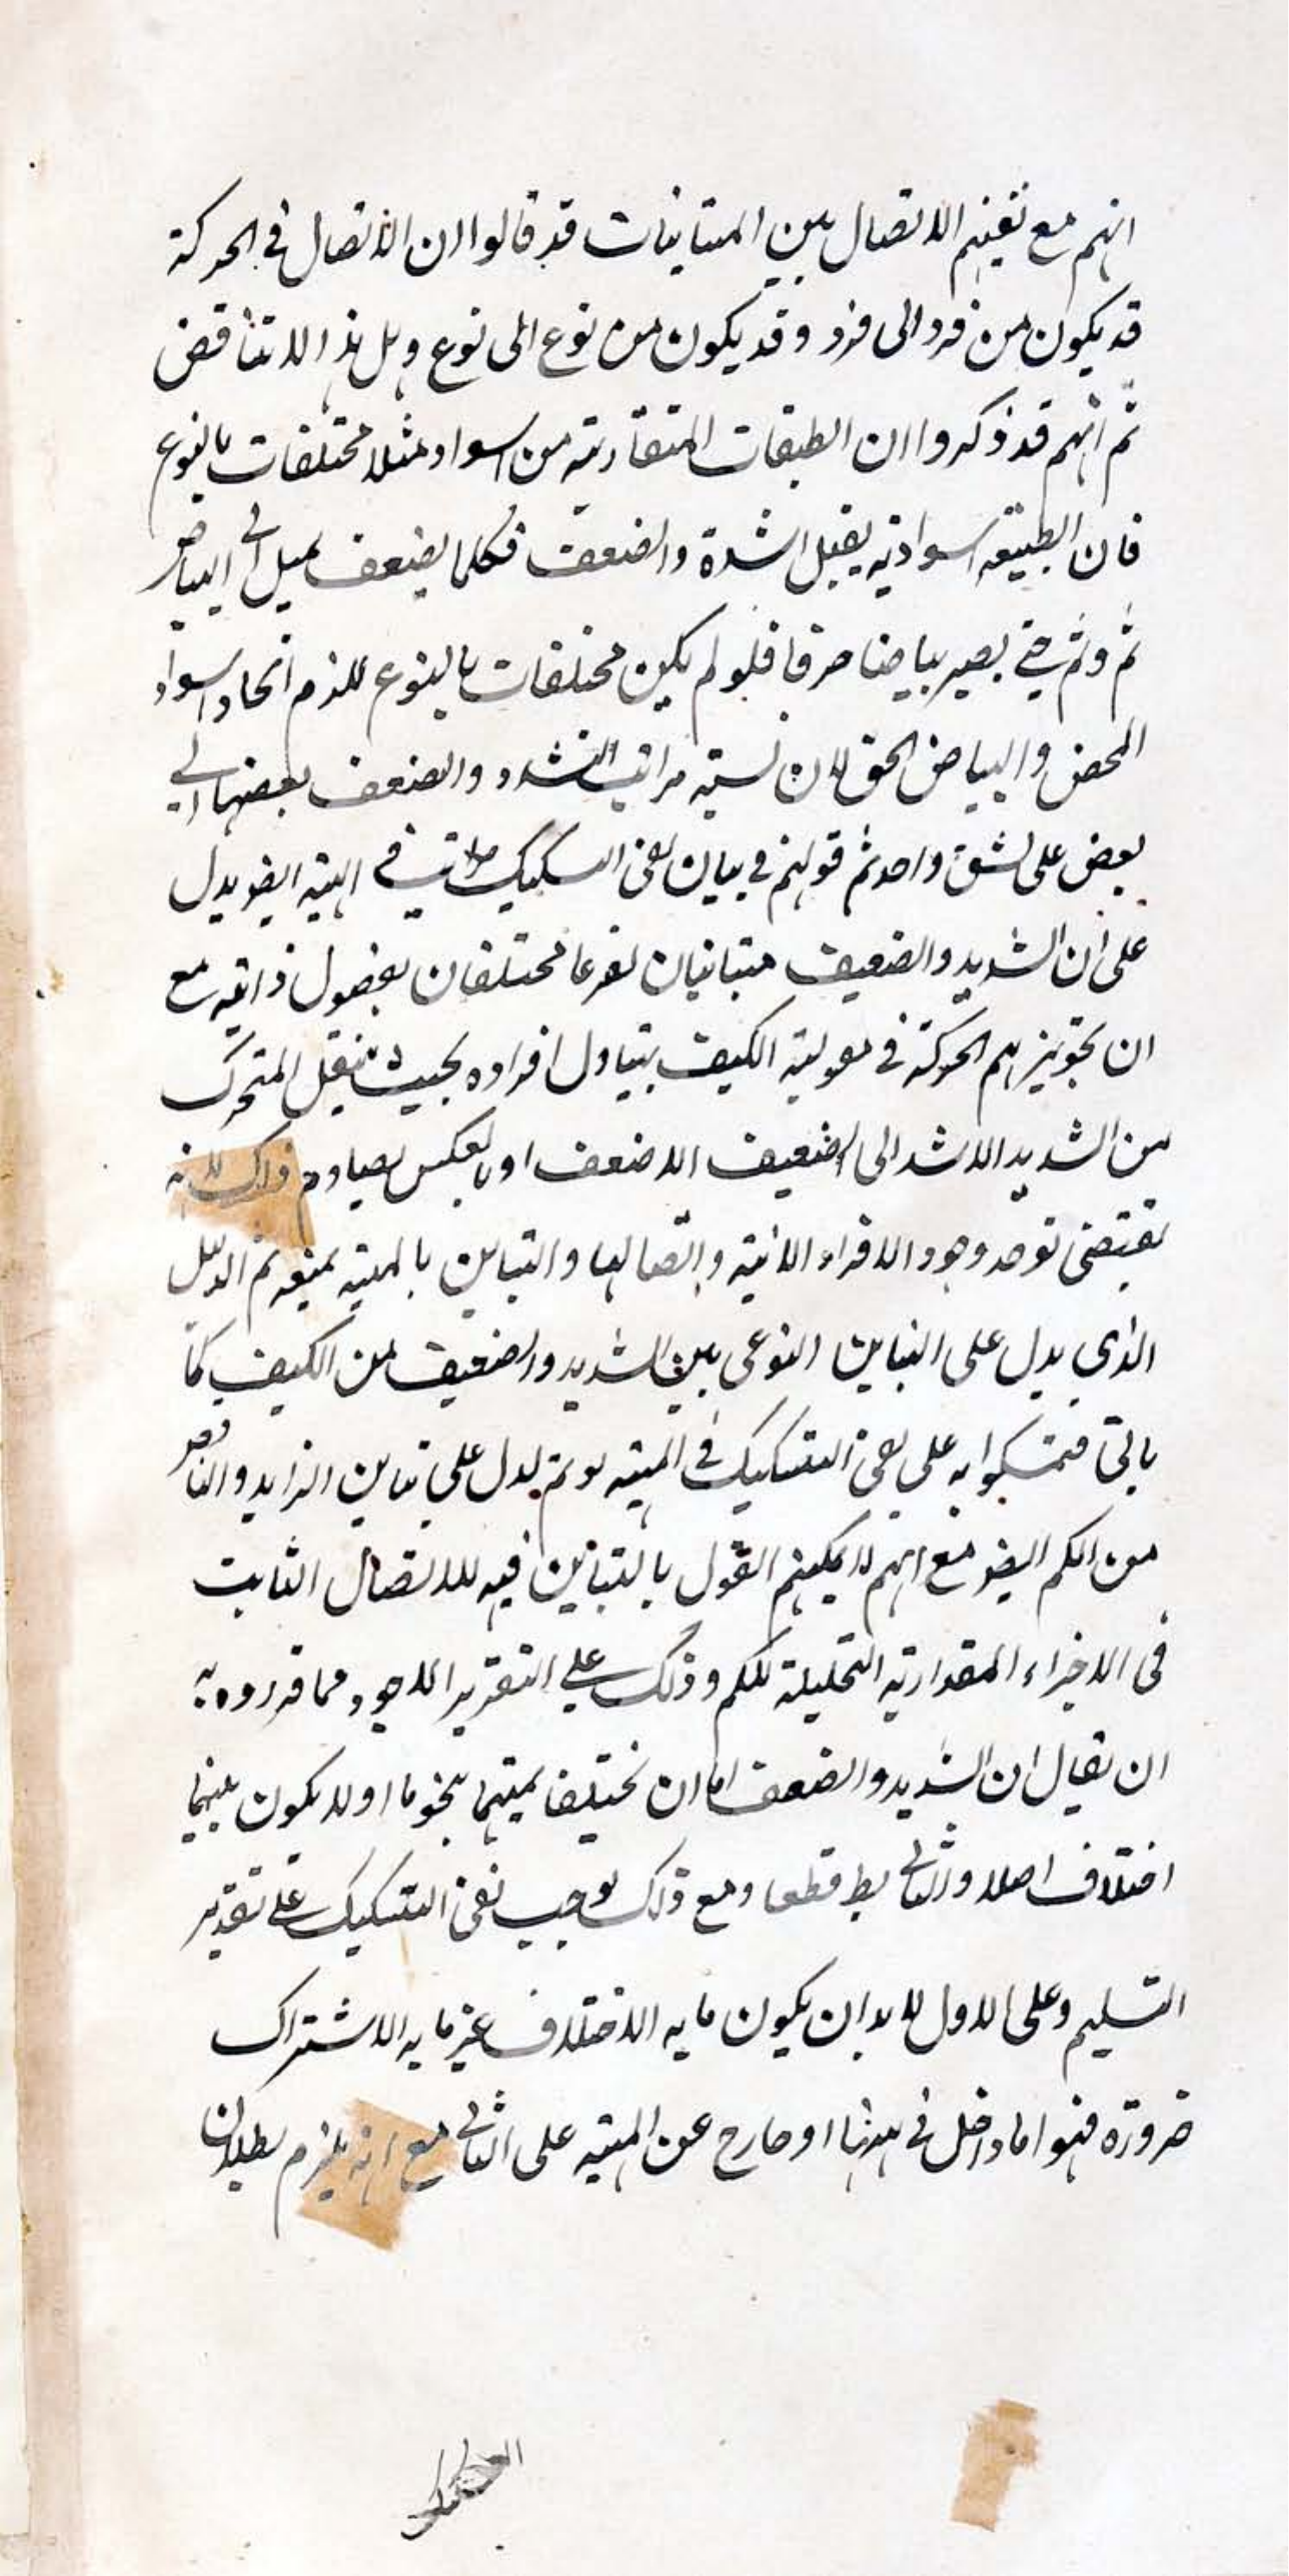 انهم مع نفيهم الاتصال بين المتباينات قد قالوا ان الاتصال في الحركة
قد يكون من فرد الى فرد وقد يكون من نوع الى نوع وهل هذا الا تناقض
ثم انهم قد ذكروا ان الطبقات المتقاربة من السواد مثلا مختلفات بالنوع
فان الطبيعة السوادية يقبل الشدة والضعف فكلما يضعف يميل الى البياض
ثم وثم حتى يصير بياضا صرفا فلو لم يكن مختلفات بالنوع للزم اتحاد السواد
المحض والبياض الحق لان نسبة مراتب التشدد والضعف بعضها الى
بعض على نسق واحد ثم قولهم في بيان نفى التشكيك في المهية ايضو يدل
على ان الشديد والضعيف متبانيان نوعا مختلفان بفصول ذاتية مع
ان تجويزهم الحركة في مقولة الكيف بتبادل افراده بحيث ينتقل المتحرك
من الشديد الاشد الى الضعيف الاضعف او بالعكس يصادم ذلك لانه
يقتضى توحد وجود الافراد الانية واتصالها والتباين بالمهية يمنعه ثم الدليل
الذي يدل على التباين النوعى بين الشديد والضعيف من الكيف كما
ياتى فتمسكوا به على نفى التشكيك في المهية لو تم لدل على تباين الزايد والناقص
من الكم ايضو مع انهم لا يمكنهم القول بالتباين فيه للاتصال الثابت
فى الاجزاء المقدارية التحليلة للكم وذلك على التقرير الاجود مما قرروه به
ان يقال ان الشديد والضعف اما ان يختلفا بميتهما بنحو ما او لا يكون بينهما
اختلاف اصلا والثانى بط قطعا ومع ذلك يوجب نفى التشكيك على تقدير
التسليم وعلى الاول لا بد ان يكون ما به الاختلاف غير ما به الاشتراك
ضرورة فهو اما داخل في او خارج عن المهية على الثانى مع انه يلزم بطلان